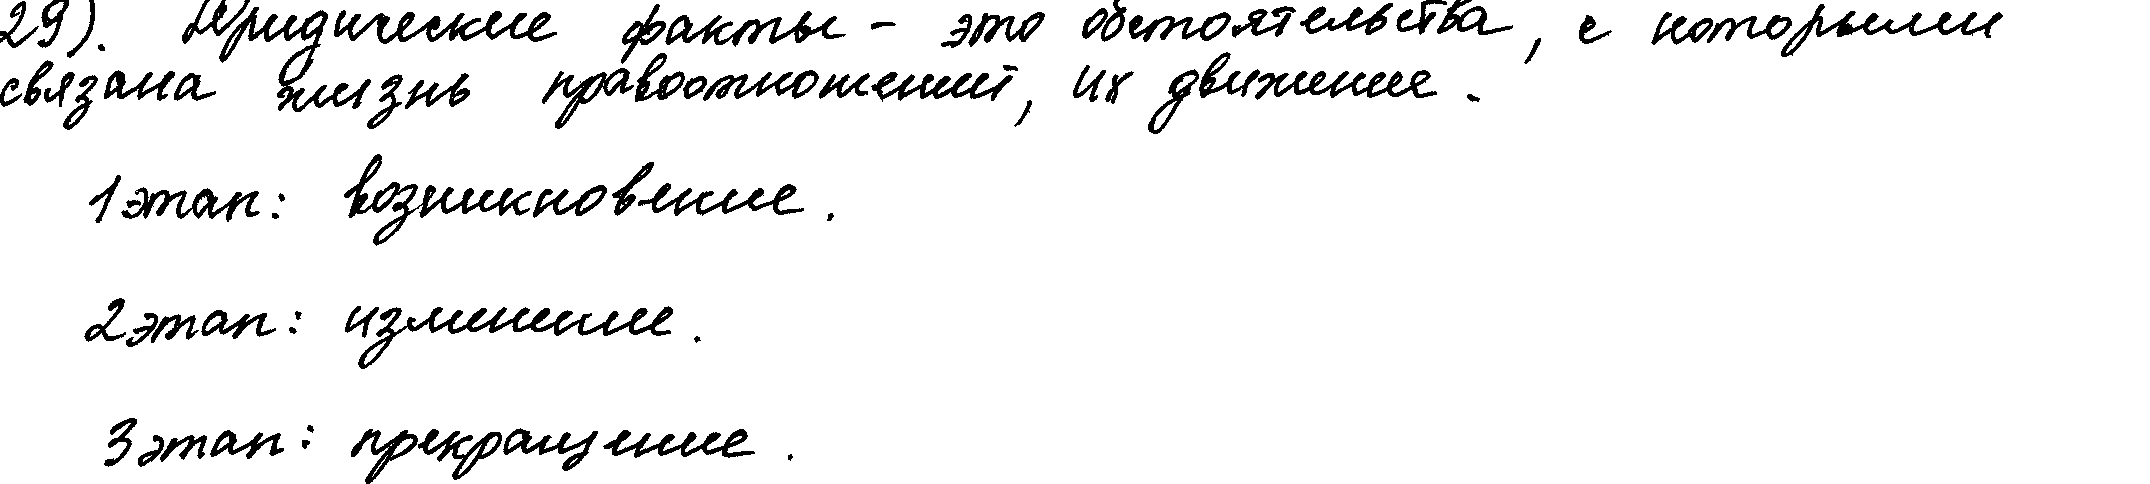 29). Юридические факты - это обстоятельства, с которыми
связана жизнь правоотношений, их движение.
1 этап: возникновение.
2 этап: изменение.
3 этап: прекращение.